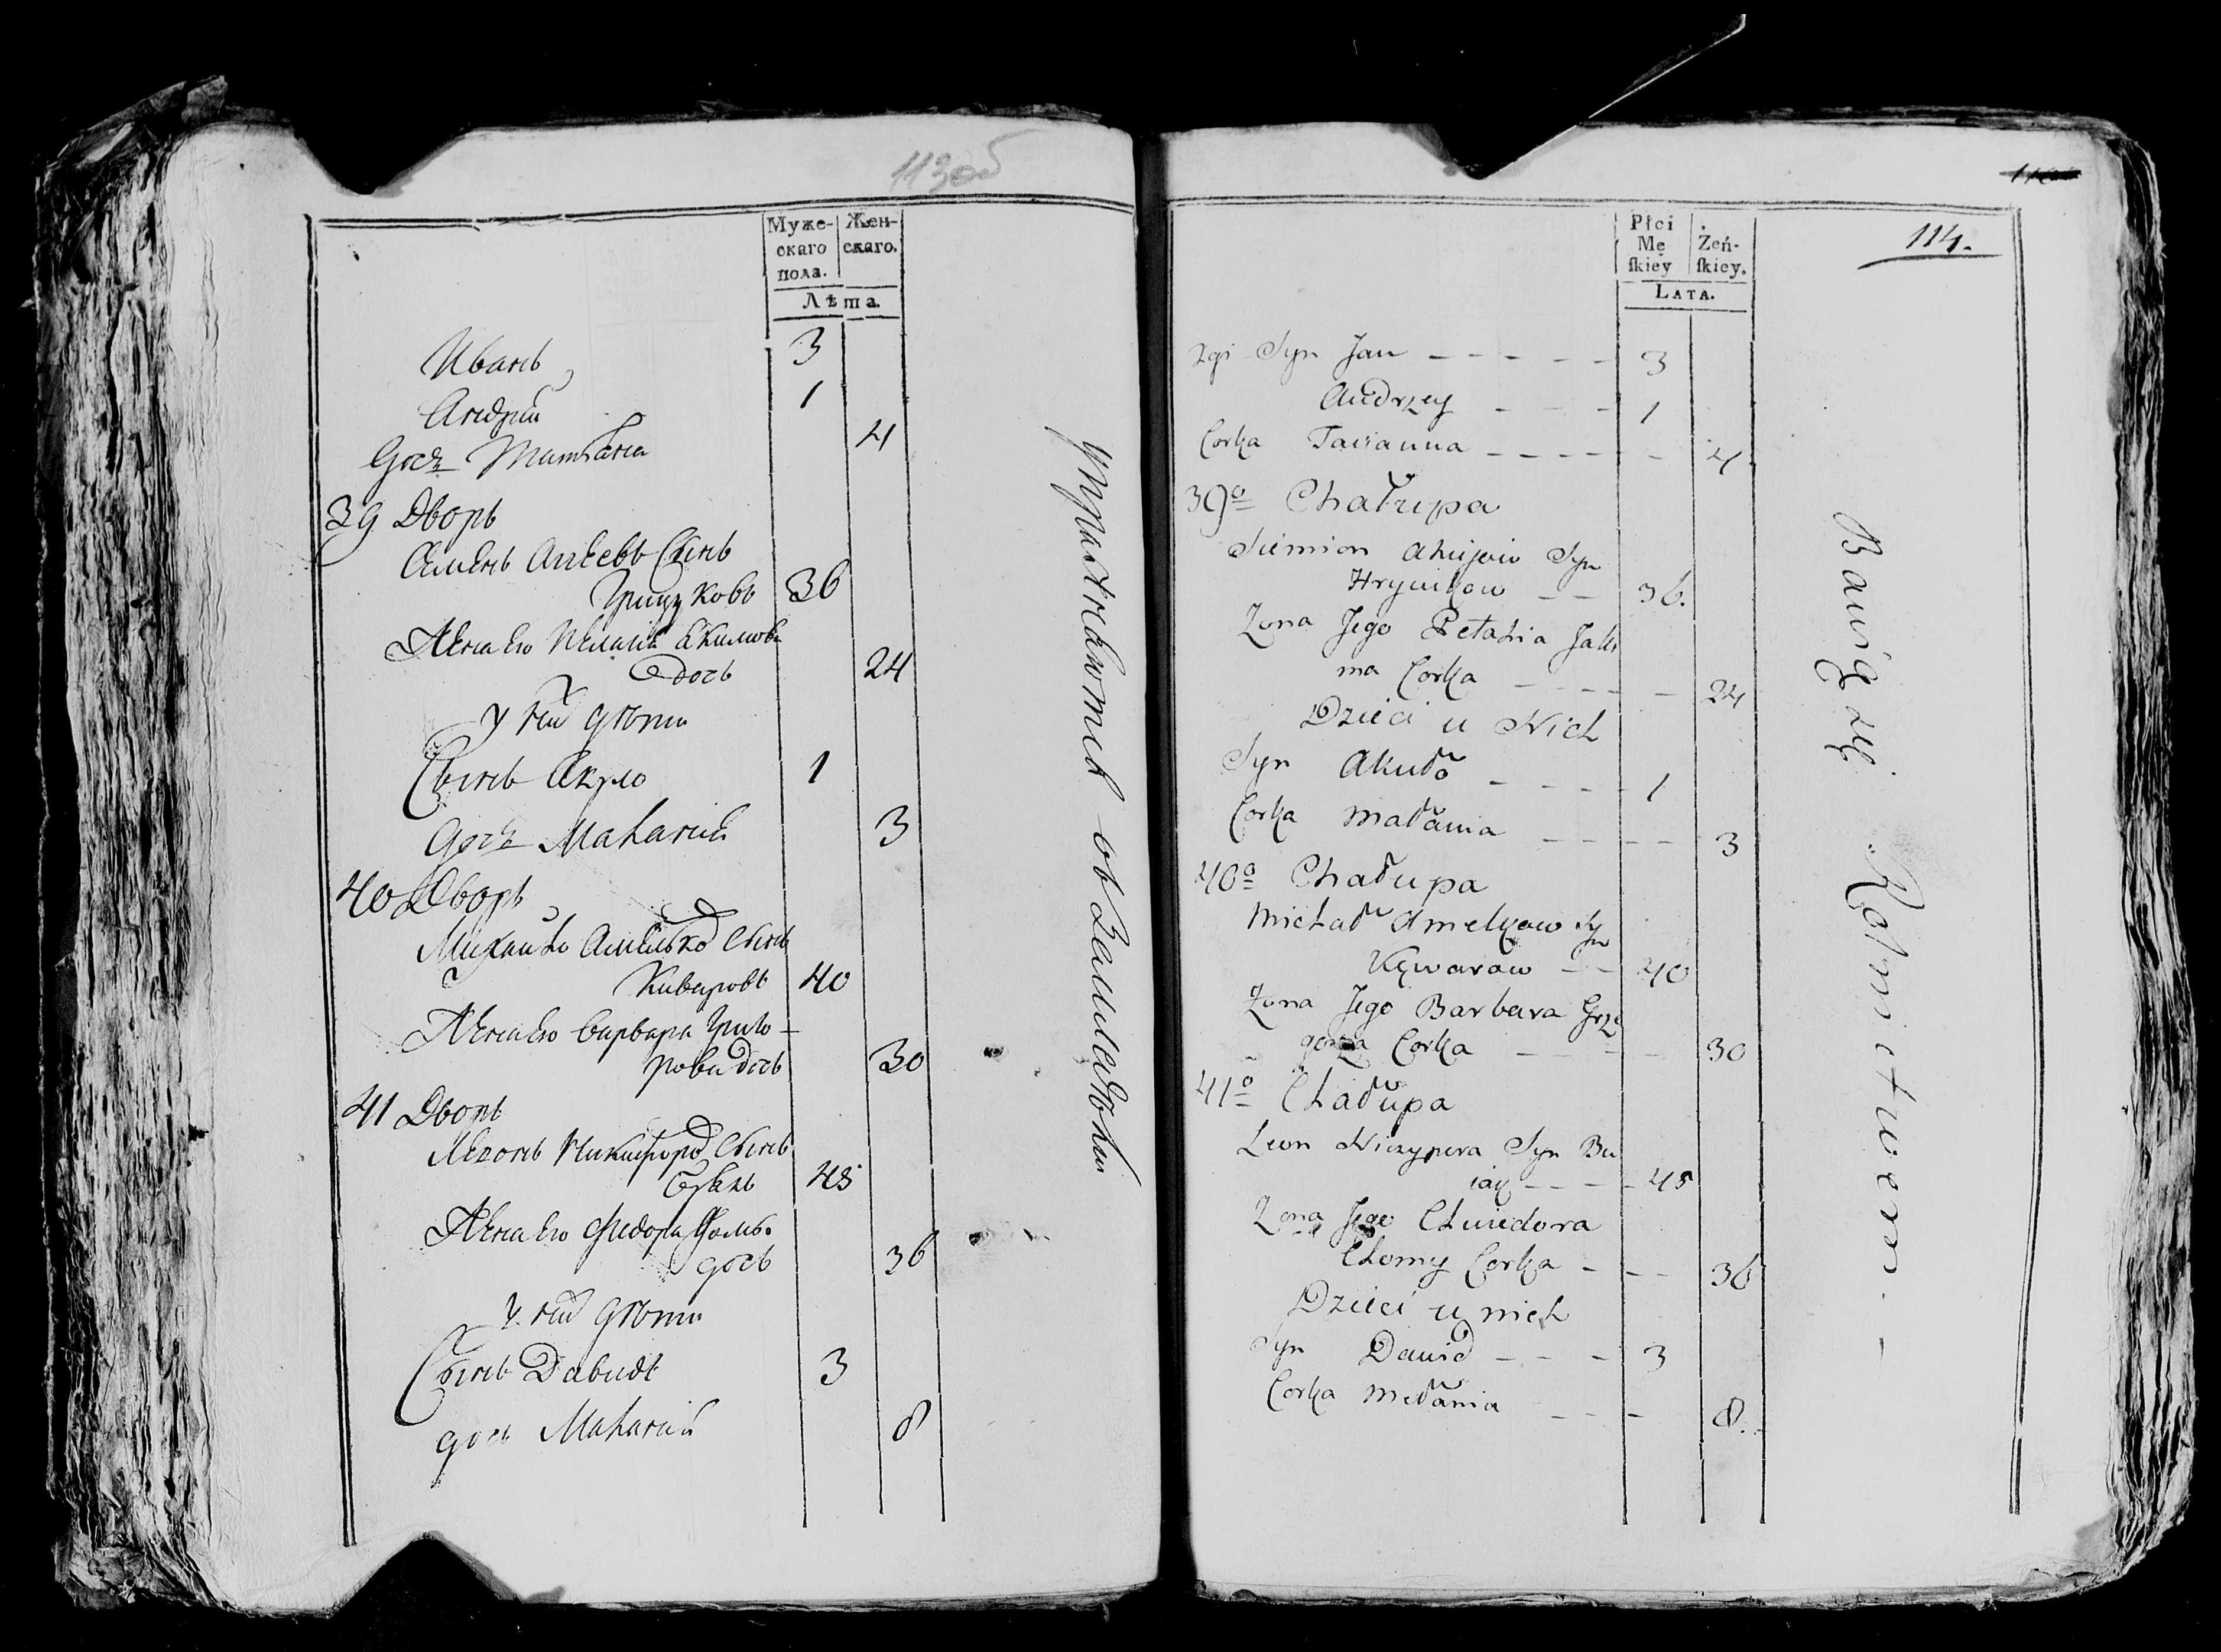 113об
Муже-
скаго
пола.
Жен-
скаго.
Лѣта.
Иванъ 3
Андрей 1
Дочь Татіана 4
39 Дворъ
Семенъ Сынъ
Грицуковъ 36
Жена Его Пелагія Екимова
Дочь 24
У них дѣти
Сынъ Акуло 1
Дочь Маланія 3
40 Дворъ
Михайло Амелько Сынъ
Киваровъ 40
Жена Его Варвара Григо-
рова Дочь 30
41 Дворъ
Леонъ Никифоръ Сынъ
45
Жена Его Федора Фомы
дочь 36
У них дѣти
Сынъ Давидъ 3
дочь Маланія 8
114.
Płci
Mę
ſkiey
Żeń-
ſkiey.
LATA.
2gi Syn Jan - - - - - 3
Andrzey - - - 1
Corka Tacianna - - - - - 4
39º Chałupa
Siemion Syn
Hrycukow - - 36.
Zona Jego Pełahia Jaki
ma Corka - - - - - 24
Dzieci u Nich
Syn Akuło - - - - 1
Corka Małania - - - - 3
40º Chałupa
Michał Amelkow Syn
Kiwarow - - 40
Zona Jego Barbara Grze
gorza Corka - - - - 30
41º Chałupa
Leon Niczypora Syn Bu
iak - - - - 45
Zona Jego Chwiedora
Chomy Corka - - - 36
Dzieci u nich
Syn Dawid - - - 3
Corka Mełania - - - 8.
Rotmistrem. -